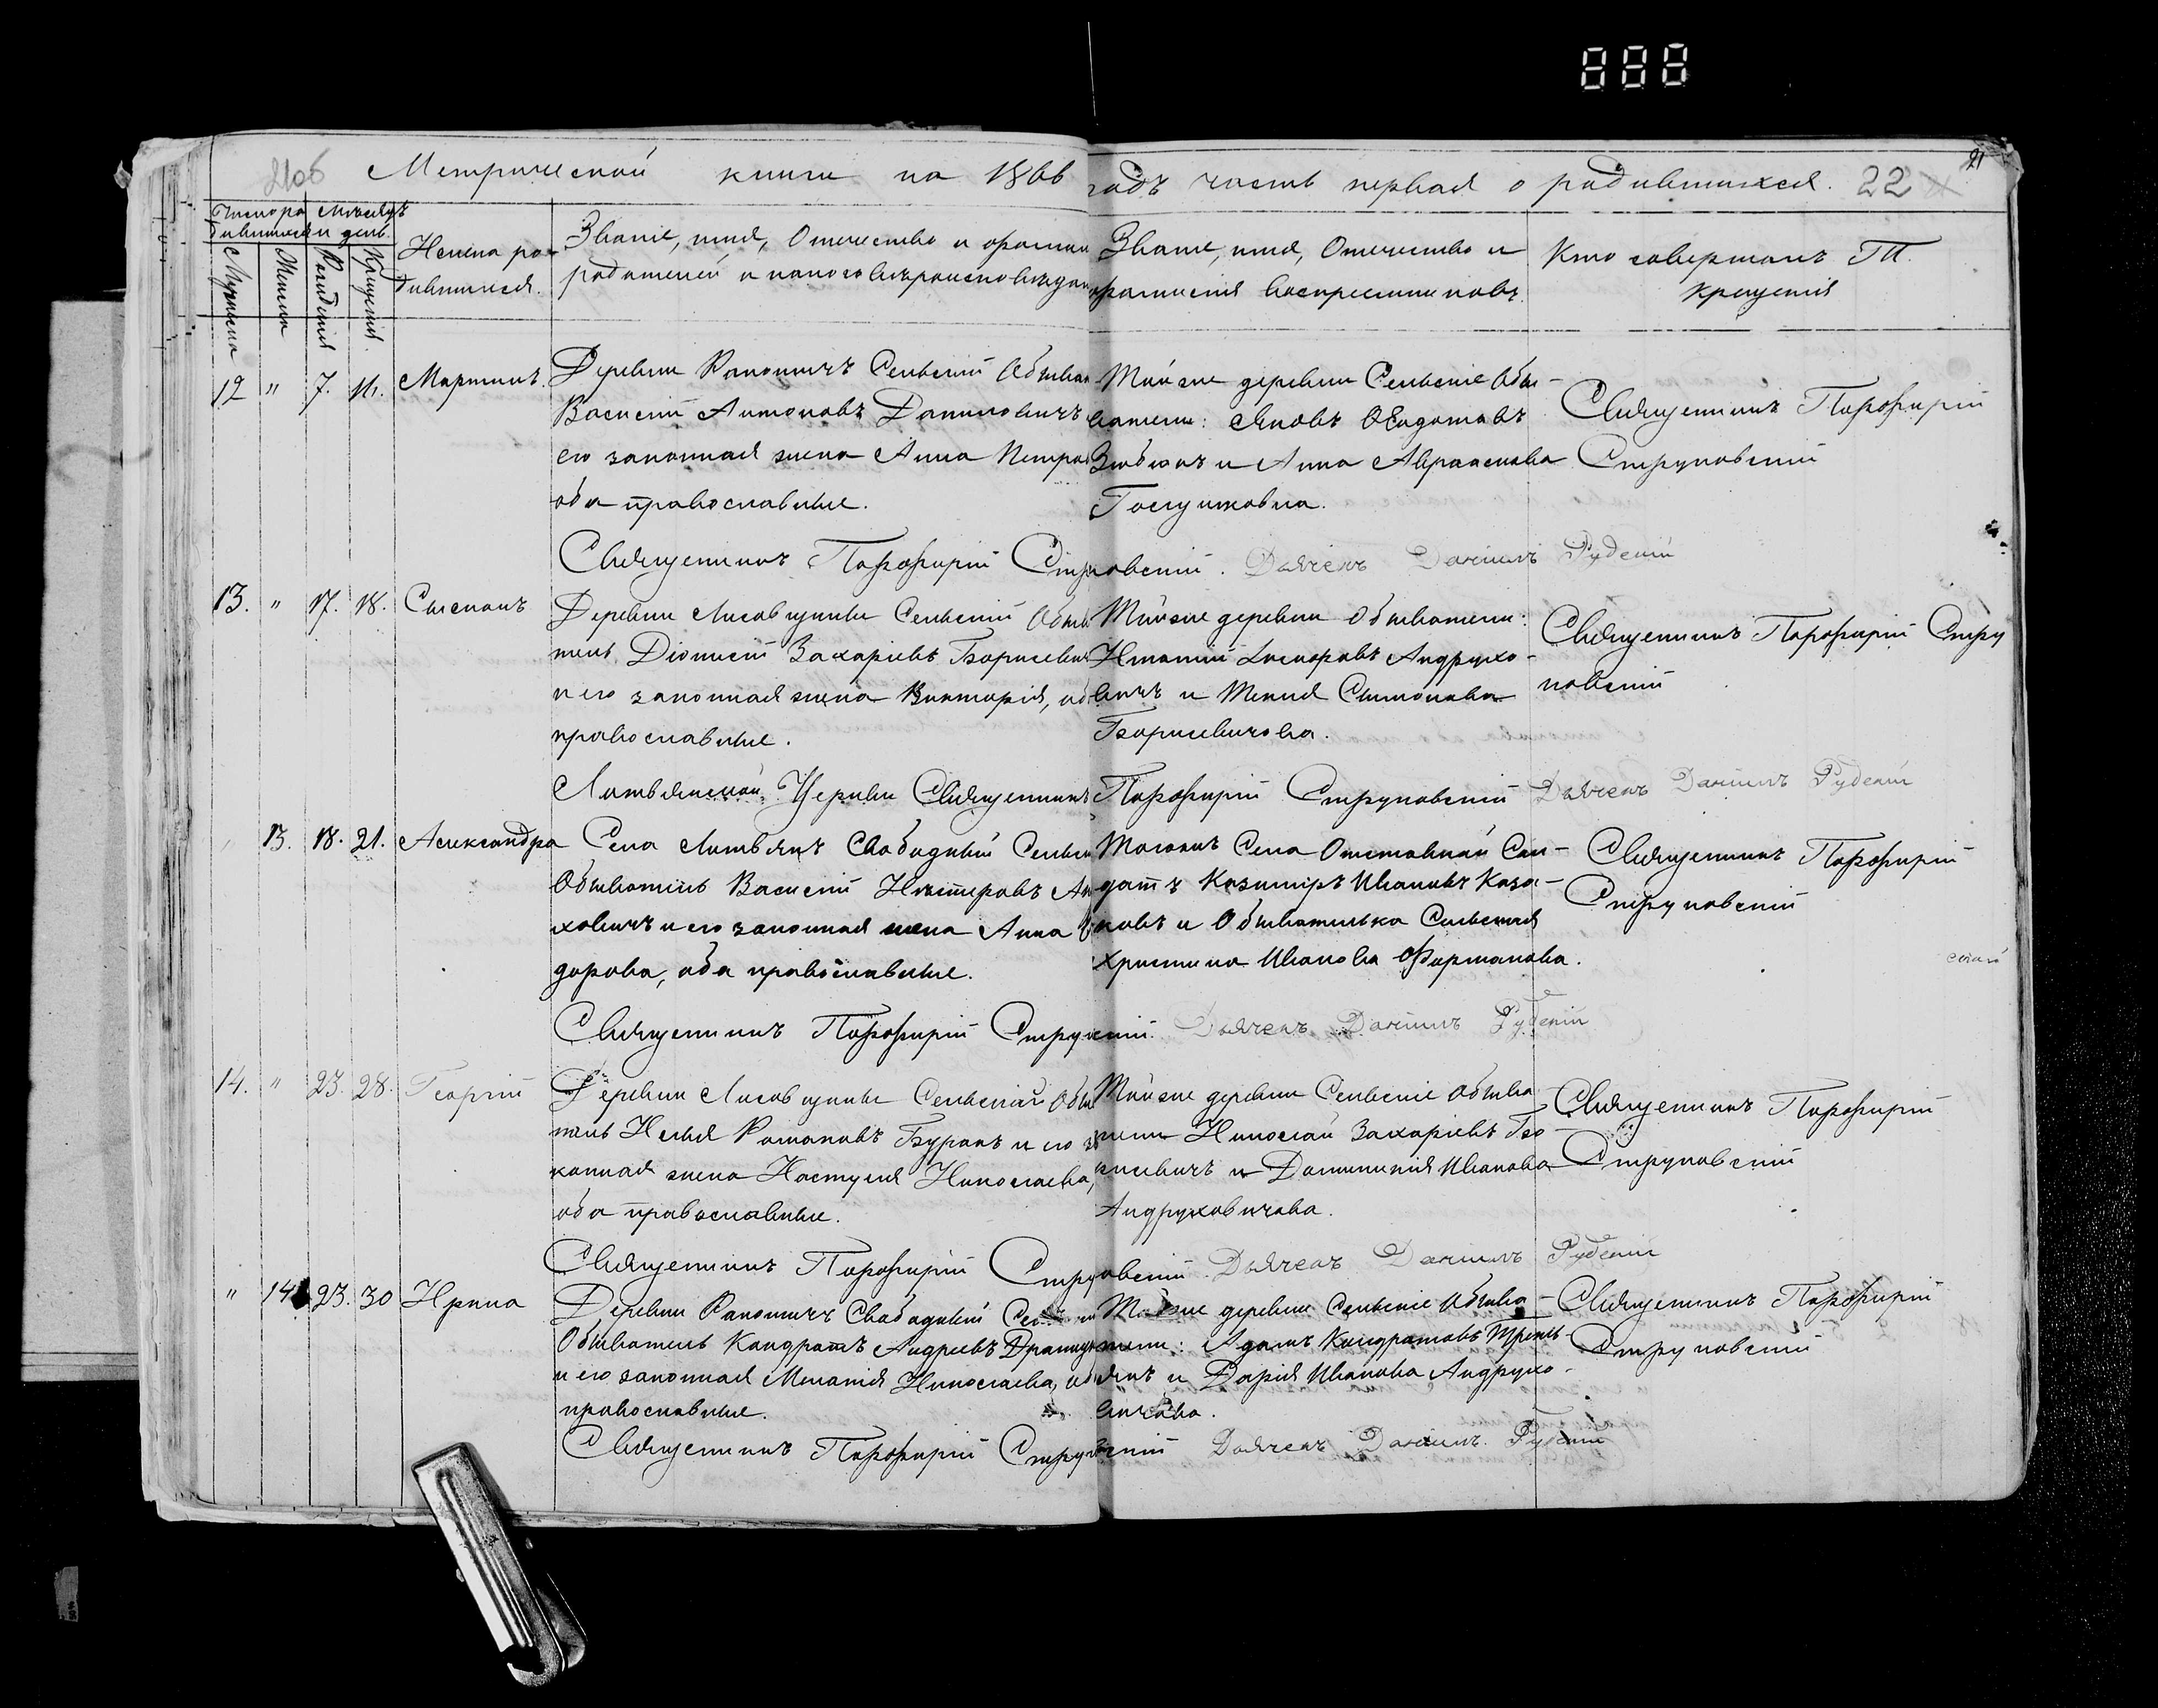 Метрической книги на 1866 годъ часть первая о родившихся. 22
21
Число ро-
дившихся
Мѣсяцъ
и день.
Мужеска
Женска
Рожденія
Крещенія.
Имена ро-
дившихся.
Званіе, имя, Отчество и
родителей и какого вѣроисповѣдан
Званіе, имя, Отчество и
фамилія воспреемниковъ.
Кто совершалъ Т.
крещенія
12 " 7. 11. Мартинъ.
Деревни Рапотичъ Сельскій Обыва
Василій Антоновъ Даниловичъ
его законная жена Анна Петро
оба православные.
Тойже деревни Сельскіе Обы-
ватели: Яковъ Ѳедотовъ
и Анна Авраамова
Священникъ Порфирій
Струковскій
Священникъ Порфирій Струковскій. Дьячекъ Даніилъ Рудскій
13. " 17. 18. Стефанъ
Деревни Лисовщины Сельскій Обыва
тель Діонисій Захаріевъ Борисевич
и его законная жена Викторія, об
православные.
Тойже деревни Обыватели:
Игнатій Андрухо-
вичъ и Текля Симонова
Борисевичова.
Священникъ Порфирій Стру
ковскій
Литвянской Церкви Священникъ Порфирій Струковскій Дьячекъ Даніилъ Рудскій
13. 18. 21. Александра
Села Литвянъ Свободный Сельск
Обыватель Василій Несторовъ Ан
ховичъ и его законная жена Анна
дорова, оба православные.
Тогожъ Села Отставной Сол-
датъ Казимиръ Ивановъ Каза-
ковъ и Обывателька Сельская
Христина Иванова Фурманова.
Священникъ Порфирій
Струковскій
Священникъ Порфирій Струкскій. Дьячекъ Даніилъ Рудскій
14. " 23. 28. Георгій
Деревни Лисовщины Сельскій Обыва
тель Илья Романовъ Буракъ и его за
конная жена Настулея Николаева,
оба православные.
Тойже деревни Сельскіе Обыва
тели Николай Захаріевъ Бо-
рисевичъ и Доминикія Иванова
Андруховичова.
Священникъ Порфирій
Струковскій
Священникъ Порфирій Струковскій. Дьячекъ Даніилъ Рудскій
" 14 23. 30 Ирина
Деревни Рапотичъ Свободный
Обыватель Кондратъ Андреевъ
и его законная Меланія Николаева, об
православные.
Тойже деревни Сельскіе Обыва-
тели: Адамъ Кондратовъ
и Дарія Иванова Андрухо-
вичова.
Священникъ Порфирій
Струковскій
Священникъ Порфирій Струковскій Дьячекъ Даніилъ Рудскій